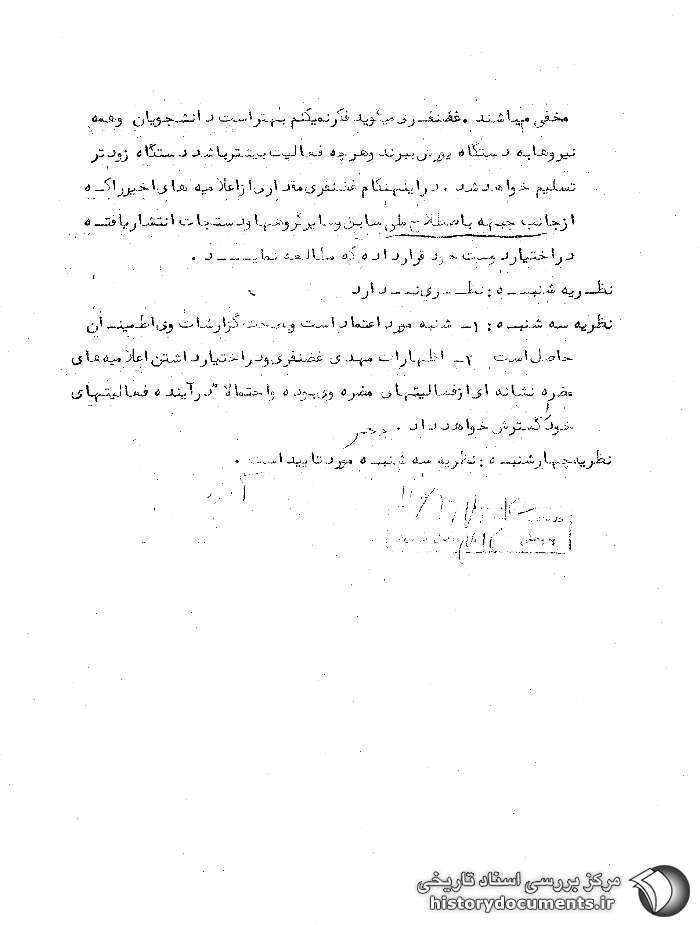 مخفی میباشند . غضنفری میگوید فکر نمیکنم بهتر است دانشجویان وهمه
نیروها به دستگاه یورش ببرند و هرچه فعالیت بیشتر باشد دستگاه زودتر
تسلیم خواهد شد . در اینهنگام غضنفری مقداری از اعلامیه های اخیر را که
از جانب جبهه باصطلاح ملی سابق و سایر گروهها و دستجات انتشار یافته
در اختیار دوست خود قرار داده که مطالعه نماید .
نظریه شنبه : نظری ندارد
نظریه سه شنبه : ۱- شنبه مورد اعتماد است و صحت گزارشات وی اطمینان
حاصل است ۲- اظهارات مهدی غضنفری و در اختیار داشتن اعلامیه های
مضره نشانه ای از فعالیتهای مضره وی بوده و احتمالا" در آینده فعالیتهای
خود گسترش خواهد داد .
نظریه چهارشنبه : نظریه سه شنبه مورد تایید است .
مرکز بررسی اسناد تاریخی
historydocuments.ir